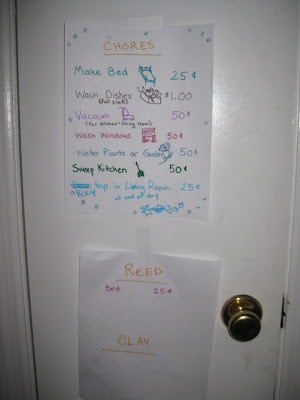 CHORES
Make Bed 25¢
Wash Dishes $1.00
(full sink)
Vacuum 50¢
(for kitchen + living room)
Wash Windows 50¢
Water Plants or Garden 50¢
Sweep Kitchen 50¢
toys in Living Room 25¢
Pickup
at end of day
REED
Bed 25¢
CLAY